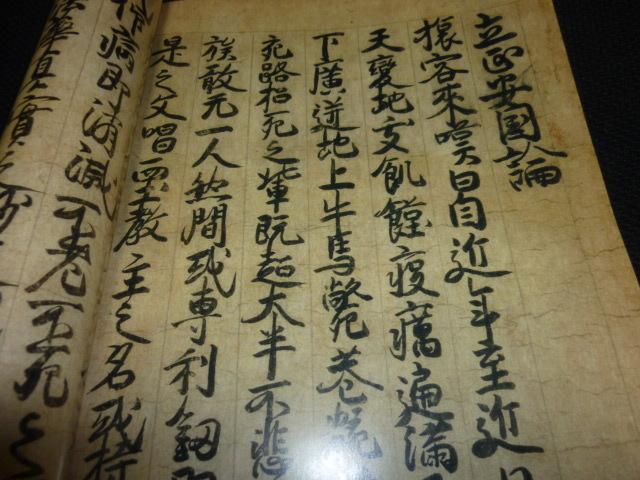 立正安国論
旅客來嘆曰自近年至近日
天變地夭飢饉疫癘遍滿
下廣迸地上牛馬斃巷骸
充路招死之輩既超大半不悲
族敢无一人然間或専利釼即
是之文唱西土教主之名或持
仰病即消滅不老不死之
法華真實之妙